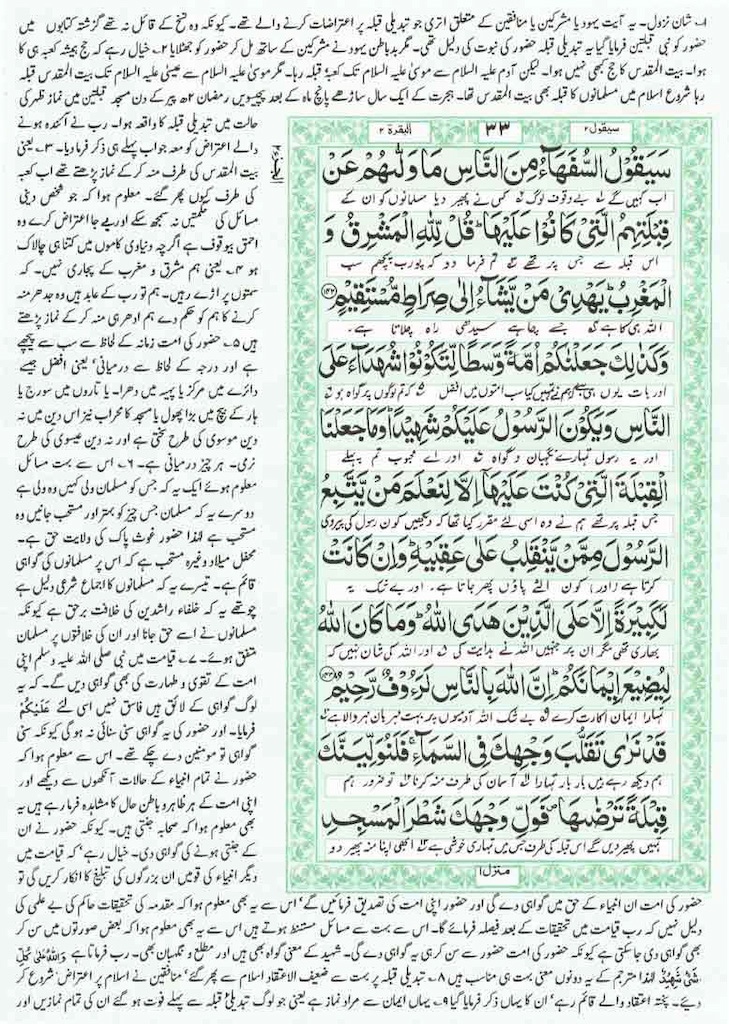 ۱۔ شان نزول۔ یہ آیت یہود یا مشرکین یا منافقین کے متعلق اتری جو تبدیلی قبلہ پر اعتراضات کرنے والے تھے۔ کیونکہ وہ نسخ کے قائل نہ تھے گزشتہ کتابوں میں
حضور کو نبی قبلتین فرمایا گیا یہ تبدیلی قبلہ حضور کی نبوت کی دلیل تھی۔ مگر بدباطن یہود نے مشرکین کے ساتھ مل کر حضور کو جھٹلایا ۲۔ خیال رہے کہ حج ہمیشہ کعبہ ہی کا
ہوا۔ بیت المقدس کا حج کبھی نہیں ہوا۔ لیکن آدم علیہ السلام سے موسیٰ علیہ السلام تک کعبہ قبلہ رہا۔ مگر موسیٰ علیہ السلام سے عیسیٰ علیہ السلام تک بیت المقدس قبلہ
رہا شروع اسلام میں مسلمانوں کا قبلہ بھی بیت المقدس تھا۔ ہجرت کے ایک سال ساڑھے پانچ ماہ کے بعد پچیسویں رمضان ۲ھ پیر کے دن مسجد قبلتین میں نماز ظہر کی
سیقول ۲
۳۳
البقرۃ ۲
سَيَقُولُ السُّفَهَآءُ مِنَ النَّاسِ مَا وَلّٰىهُمْ عَنْ
اب کہیں گے بے وقوف لوگ کس نے پھیر دیا مسلمانوں کو ان کے
قِبْلَتِهِمُ الَّتِيْ كَانُوْا عَلَيْهَا ؕ قُلْ لِّلّٰهِ الْمَشْرِقُ وَ
اس قبلہ سے جس پر تھے تم فرما دو کہ پورب پچھم سب
الْمَغْرِبُ ؕ يَهْدِيْ مَنْ يَّشَآءُ اِلٰى صِرَاطٍ مُّسْتَقِيْمٍ ۝۱۴۲
اللہ ہی کا ہے جسے چاہے سیدھی راہ چلاتا ہے۔
وَكَذٰلِكَ جَعَلْنٰكُمْ اُمَّةً وَّسَطًا لِّتَكُوْنُوْا شُهَدَآءَ عَلَى
اور بات یوں ہی ہے کہ ہم نے تمہیں کیا سب امتوں میں افضل کہ تم لوگوں پر گواہ ہو
النَّاسِ وَيَكُوْنَ الرَّسُوْلُ عَلَيْكُمْ شَهِيْدًا ؕ وَمَا جَعَلْنَا
اور یہ رسول تمہارے نگہبان و گواہ اور اے محبوب تم پہلے
الْقِبْلَةَ الَّتِيْ كُنْتَ عَلَيْهَآ اِلَّا لِنَعْلَمَ مَنْ يَّتَّبِعُ
جس قبلہ پر تھے ہم نے وہ اسی لئے مقرر کیا تھا کہ دیکھیں کون رسول کی پیروی
الرَّسُوْلَ مِمَّنْ يَّنْقَلِبُ عَلٰى عَقِبَيْهِ ؕ وَاِنْ كَانَتْ
کرتا ہے اور کون الٹے پاؤں پھر جاتا ہے۔ اور بے شک یہ
لَكَبِيْرَةً اِلَّا عَلَى الَّذِيْنَ هَدَى اللّٰهُ ؕ وَمَا كَانَ اللّٰهُ
بھاری تھی مگر ان پر جنہیں اللہ نے ہدایت کی اور اللہ کی شان نہیں کہ
لِيُضِيْعَ اِيْمَانَكُمْ ؕ اِنَّ اللّٰهَ بِالنَّاسِ لَرَءُوْفٌ رَّحِيْمٌ ۝۱۴۳
تمہارا ایمان اکارت کرے بے شک اللہ آدمیوں پر بہت مہربان مہر والا ہے
قَدْ نَرٰى تَقَلُّبَ وَجْهِكَ فِي السَّمَآءِ ۚ فَلَنُوَلِّيَنَّكَ
ہم دیکھ رہے ہیں بار بار تمہارا آسمان کی طرف منہ کرنا تو ضرور ہم
قِبْلَةً تَرْضٰىهَا ۪ فَوَلِّ وَجْهَكَ شَطْرَ الْمَسْجِدِ
تمہیں پھیر دیں گے اس قبلہ کی طرف جس میں تمہاری خوشی ہے ابھی اپنا منہ پھیر دو
منزل ۱
الجزء ۲
حالت میں تبدیلی قبلہ کا واقعہ ہوا۔ رب نے آئندہ ہونے
والے اعتراض کو معہ جواب پہلے ہی ذکر فرما دیا۔ ۳۔ یعنی
بیت المقدس کی طرف منہ کر کے نماز پڑھتے تھے اب کعبہ
کی طرف کیوں پھر گئے۔ معلوم ہوا کہ جو شخص دینی
مسائل کی حکمتیں نہ سمجھ سکے اور بے جا اعتراض کرے وہ
احمق بیوقوف ہے اگرچہ دنیاوی کاموں میں کتنا ہی چالاک
ہو ۴۔ یعنی ہم مشرق و مغرب کے پجاری نہیں۔ کہ
سمتوں پر اڑے رہیں۔ ہم تو رب کے عابد ہیں وہ جدھر منہ
کرنے کا ہم کو حکم دے ہم ادھر ہی منہ کر کے نماز پڑھتے
ہیں ۵۔ حضور کی امت زمانہ کے لحاظ سے سب سے پیچھے
ہے اور درجہ کے لحاظ سے درمیانی' یعنی افضل جیسے
دائرے میں مرکز یا پہیہ میں دھرا۔ یا تاروں میں سورج یا
ہار کے بیچ میں بڑا پھول یا مسجد کا محراب نیز اس دین میں نہ
دین موسوی کی طرح سختی ہے اور نہ دین عیسوی کی طرح
نرمی۔ ہر چیز درمیانی ہے۔ ۶۔ اس سے بہت مسائل
معلوم ہوئے ایک یہ کہ جس کو مسلمان ولی کہیں وہ ولی ہے
دوسرے یہ کہ مسلمان جس چیز کو بہتر اور مستحب جانیں وہ
مستحب ہے لہذا حضور غوث پاک کی ولایت حق ہے۔
محفل میلاد وغیرہ مستحب ہے کہ اس پر مسلمانوں کی گواہی
قائم ہے۔ تیسرے یہ کہ مسلمانوں کا اجماع شرعی دلیل ہے
چوتھے یہ کہ خلفاء راشدین کی خلافت برحق ہے کیونکہ
مسلمانوں نے اسے حق جانا اور ان کی خلافتوں پر مسلمان
متفق ہوئے۔ ۷۔ قیامت میں نبی صلی اللہ علیہ وسلم اپنی
امت کے تقویٰ و طہارت کی بھی گواہی دیں گے۔ کہ یہ
لوگ گواہی کے لائق ہیں فاسق نہیں اسی لئے عَلَيْكُمْ
فرمایا۔ اور حضور کی یہ گواہی سنی سنائی نہ ہو گی کیونکہ سنی
گواہی تو مومنین دے چکے تھے۔ اس سے معلوم ہوا کہ
حضور نے تمام انبیاء کے حالات آنکھوں سے دیکھے اور
اپنی امت کے ہر ظاہر و باطن حال کا مشاہدہ فرما رہے ہیں یہ
بھی معلوم ہوا کہ صحابہ جنتی ہیں۔ کیونکہ حضور نے ان
کے جنتی ہونے کی گواہی دی۔ خیال رہے' کہ قیامت میں
دیگر انبیاء کی قومیں ان بزرگوں کی تبلیغ کا انکار کریں گی تو
حضور کی امت ان انبیاء کے حق میں گواہی دے گی اور حضور اپنی امت کی تصدیق فرمائیں گے' اس سے یہ بھی معلوم ہوا کہ مقدمہ کی تحقیقات حاکم کی بے علمی کی
دلیل نہیں کہ رب قیامت میں تحقیقات کے بعد فیصلہ فرمائے گا۔ اس سے بہت سے مسائل مستنبط ہوتے ہیں اس سے یہ بھی معلوم ہوا کہ بعض صورتوں میں سن کر
بھی گواہی دی جا سکتی ہے کیونکہ حضور کی امت حضور سے سن کر ہی یہ گواہی دے گی۔ شہید کے معنی گواہ بھی ہیں اور مطلع و نگہبان بھی۔ رب فرماتا ہے وَاللّٰهُ عَلٰى كُلِّ
شَيْءٍ شَهِيْدٌ لہذا مترجم کے یہ دونوں معنی بہت ہی مناسب ہیں ۸۔ تبدیلی قبلہ پر بہت سے ضعیف الاعتقاد اسلام سے پھر گئے' منافقین نے اسلام پر اعتراض شروع کر
دیئے۔ پختہ اعتقاد والے قائم رہے' ان کا یہاں ذکر فرمایا گیا ۹۔ یہاں ایمان سے مراد نماز ہے یعنی جو لوگ تبدیلی قبلہ سے پہلے فوت ہو گئے ان کی تمام نمازیں اور